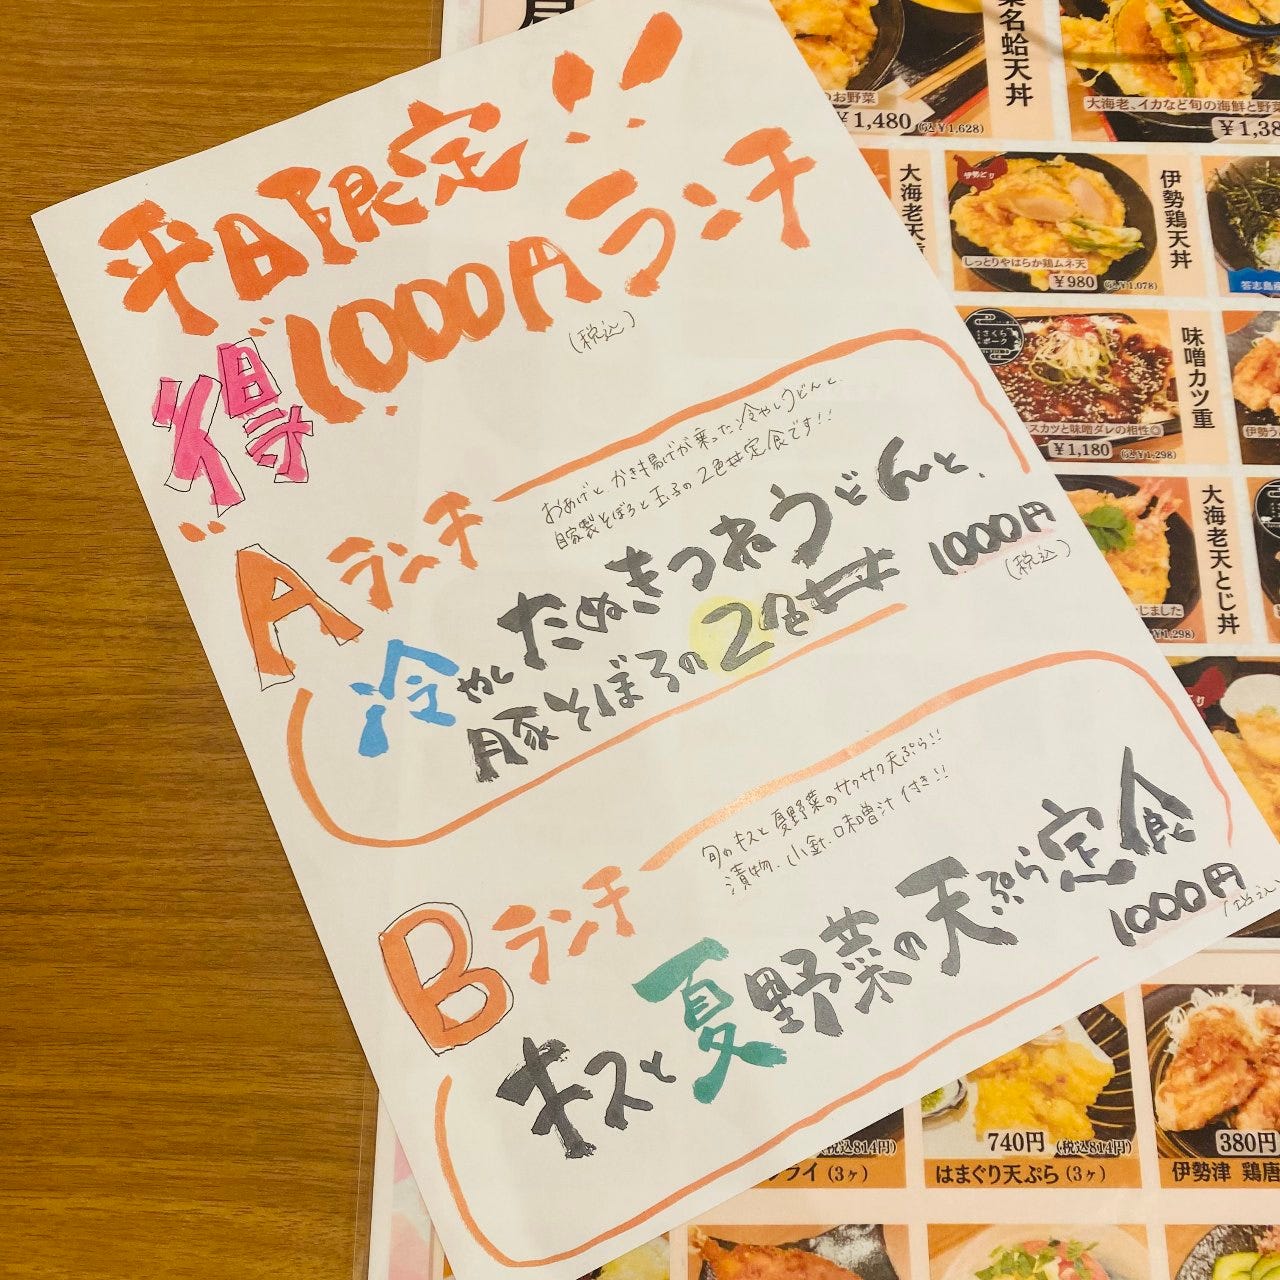 平日限定!!
得1000円ランチ
(税込)
Aランチ
おあげと、かき揚げが乗った冷やしうどんと、
自家製そぼろと玉子の2色丼定食です!!
冷やしたぬきつねうどんと、
豚そぼろの2色丼
1000円
(税込)
Bランチ
旬のキスと夏野菜のサクサク天ぷら!!
漬物、小鉢、味噌汁付き!!
キスと夏野菜の天ぷら定食
1000円
(税込)
桑名蛤天丼
のお野菜
¥1,480(込¥1,628)
大海老、イカなど旬の海鮮と野菜
¥1,38
大海老天
伊勢どり
しっとりやはらか鶏ムネ天
¥980(込¥1,078)
伊勢鶏天丼
答志島産
さくらポーク
スカツと味噌ダレの相性◎
¥1,180(込¥1,298)
味噌カツ重
伊勢う
じました
¥1,298)
大海老天とじ丼
(税込814円)
フライ(3ヶ)
740円(税込814円)
はまぐり天ぷら(3ヶ)
380円
伊勢津 鶏唐